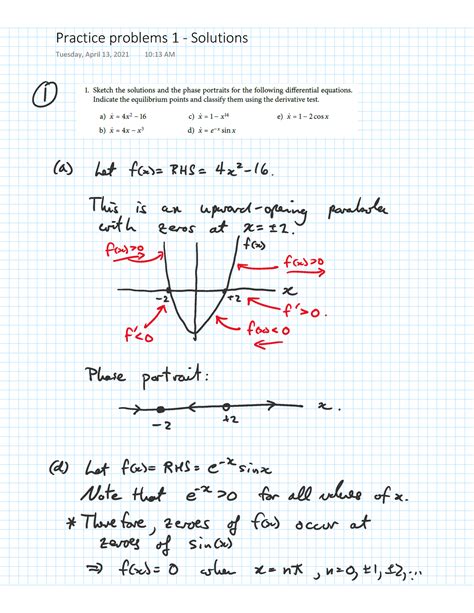 Practice problems 1 - Solutions
Tuesday, April 13, 2021 10:13 AM
①
1. Sketch the solutions and the phase portraits for the following differential equations.
Indicate the equilibrium points and classify them using the derivative test.
a) ẋ = 4x² − 16 c) ẋ = 1 − x¹⁴ e) ẋ = 1 − 2 cos x
b) ẋ = 4x − x³ d) ẋ = e⁻ˣ sin x
(a) Let f(x) = RHS = 4x² − 16.
This is an upward-opening parabola
with zeros at x = ±2.
f(x)>0 f(x)
f(x)>0
x
-2 +2
f'>0.
f'<0 f(x)<0
Phase portrait:
x.
-2 +2
(d) Let f(x) = RHS = e⁻ˣ sinx
Note that e⁻ˣ > 0 for all values of x.
* Therefore, zeroes of f(x) occur at
zeroes of sin(x)
⇒ f(x) = 0 when x = nπ, n=0, ±1, ±2, ...